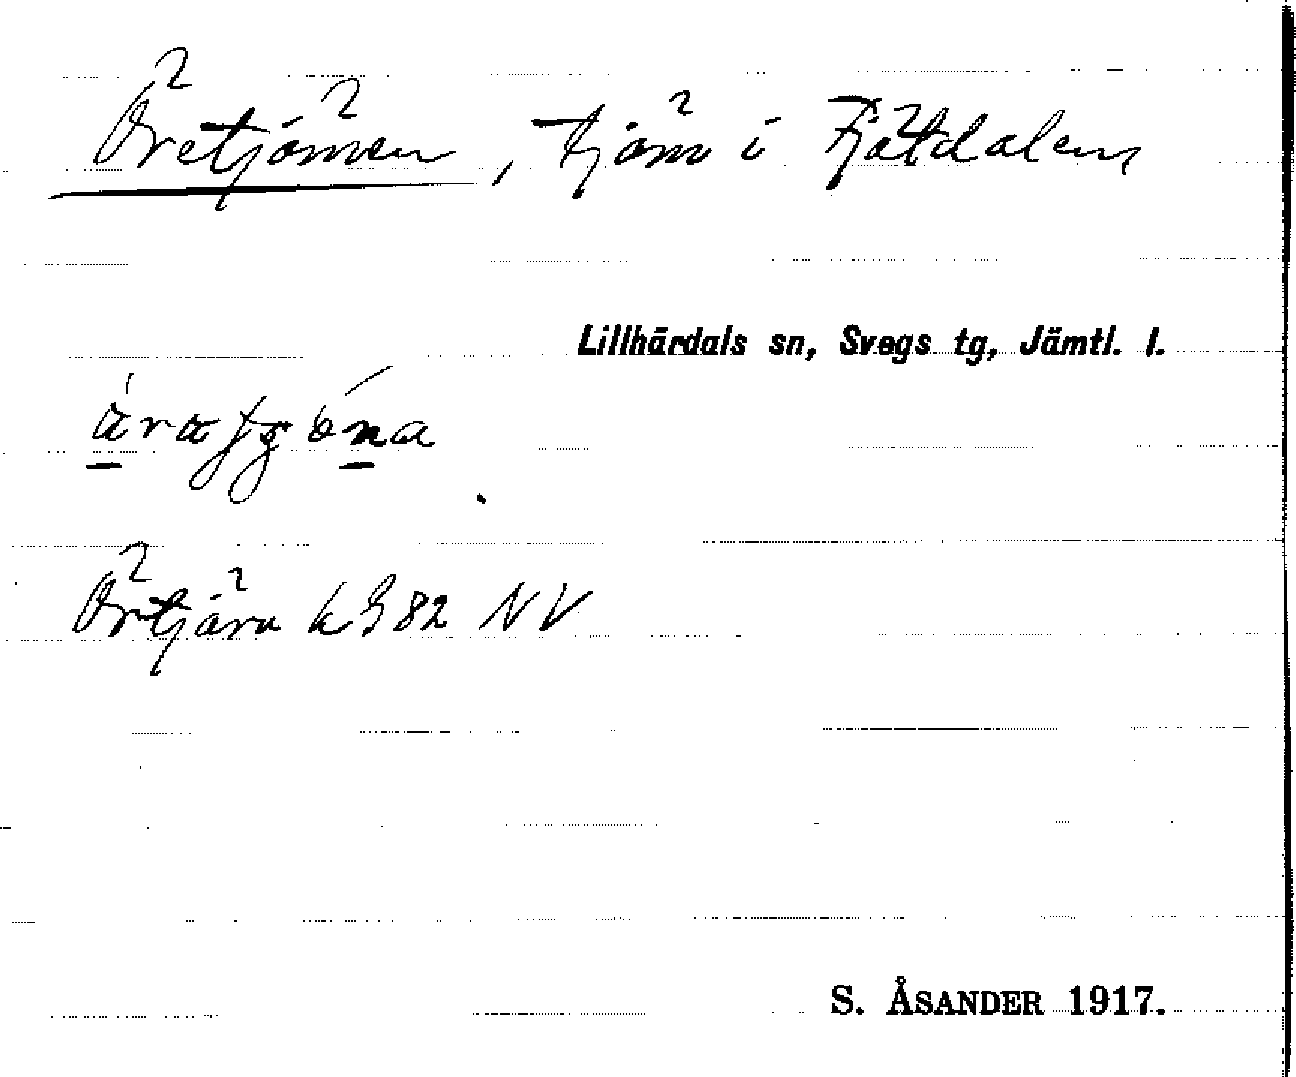 Öretjärnen, tjärn i Fjätdalen,
Lillhärdals sn, Svegs tg, Jämtl. l.
Örtjärn k 982 NV
S. ÅSANDER 1917.